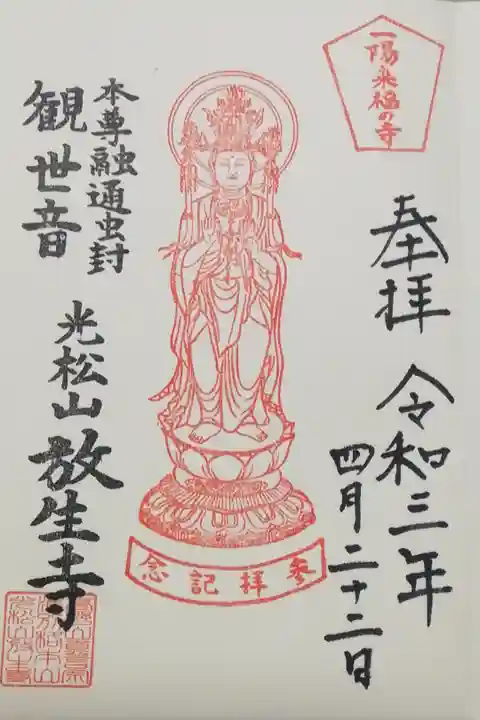 一陽来福の寺
奉拝
令和三年
四月二十二日
参拝記念
本尊融通虫封
観世音
光松山放生寺